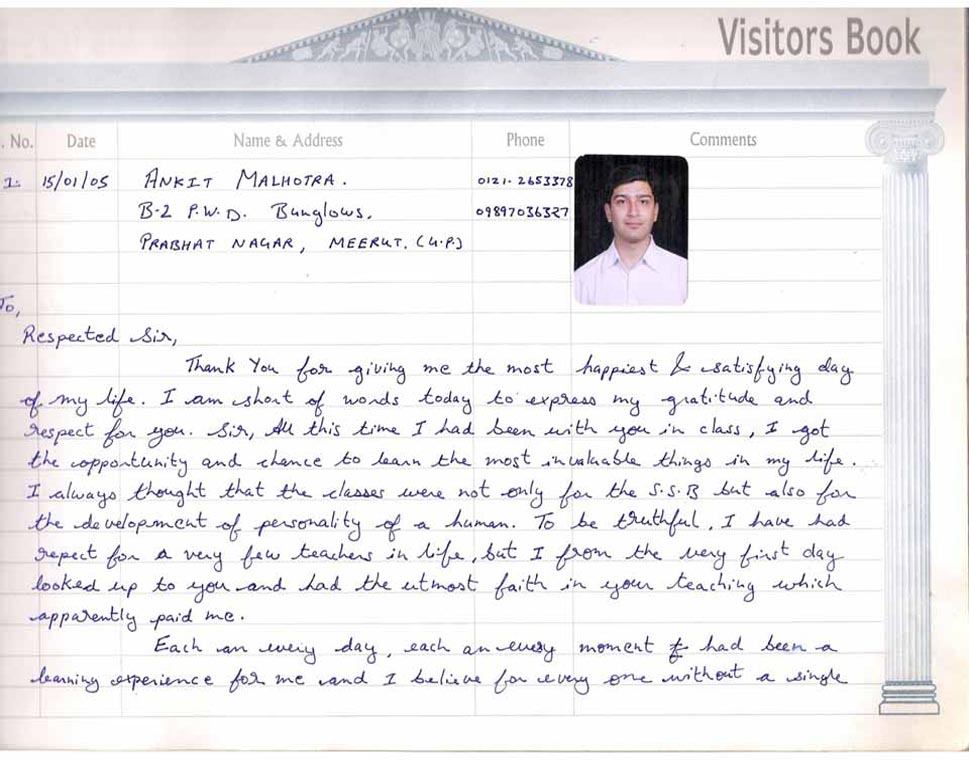 Visitors Book
. No. Date Name & Address Phone Comments
1. 15/01/05 ANKIT MALHOTRA. 0121-2653378
B-2 P.W.D. Bunglows, 09897036327
PRABHAT NAGAR, MEERUT. (U.P.)
To,
Respected Sir,
Thank You for giving me the most happiest & satisfying day
of my life. I am short of words today to express my gratitude and
respect for you. Sir, All this time I had been with you in class, I got
the opportunity and chance to learn the most invaluable things in my life.
I always thought that the classes were not only for the S.S.B but also for
the development of personality of a human. To be truthful, I have had
repect for a very few teachers in life, but I from the very first day
looked up to you and had the utmost faith in your teaching which
apparently paid me.
Each an every day, each an every moment had been a
learning experience for me and I believe for every one without a single